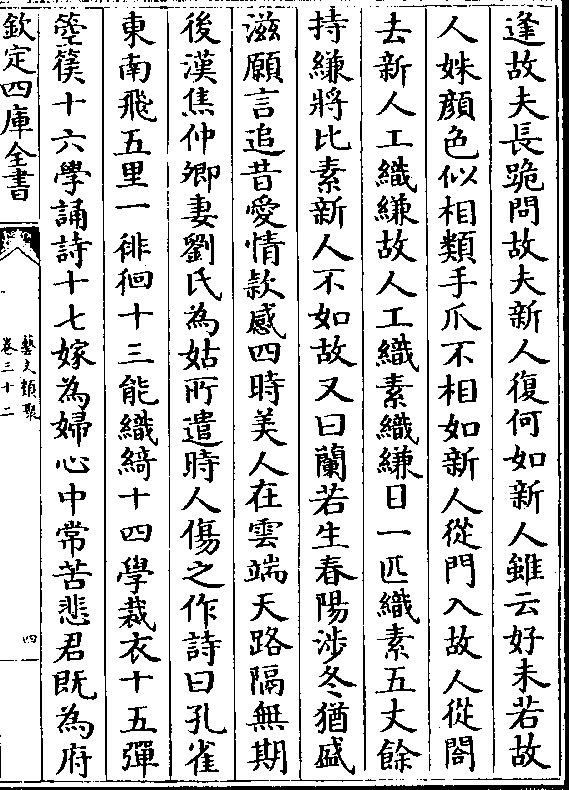 逢故夫長跪問故夫新人復何如新人雖云好未若故
人姝顔色似相類手爪不相如新人從門入故人從閤
去新人工織縑故人工織素織縑日一匹織素五丈餘
持縑將比素新人不如故又曰蘭若生春陽涉冬猶盛
滋願言追昔愛情款感四時美人在雲端天路隔無期
後漢焦仲卿妻劉氏為姑所遣時人傷之作詩曰孔雀
東南飛五里一徘徊十三能織綺十四學裁衣十五彈
箜篌十六學誦詩十七嫁為婦心中常苦悲君既為府
欽定四庫全書
藝文類聚
卷三十二
四